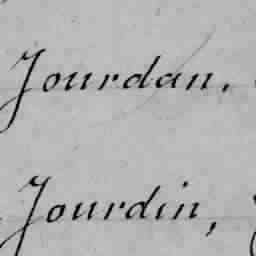 Jourdan.
Jourdin,